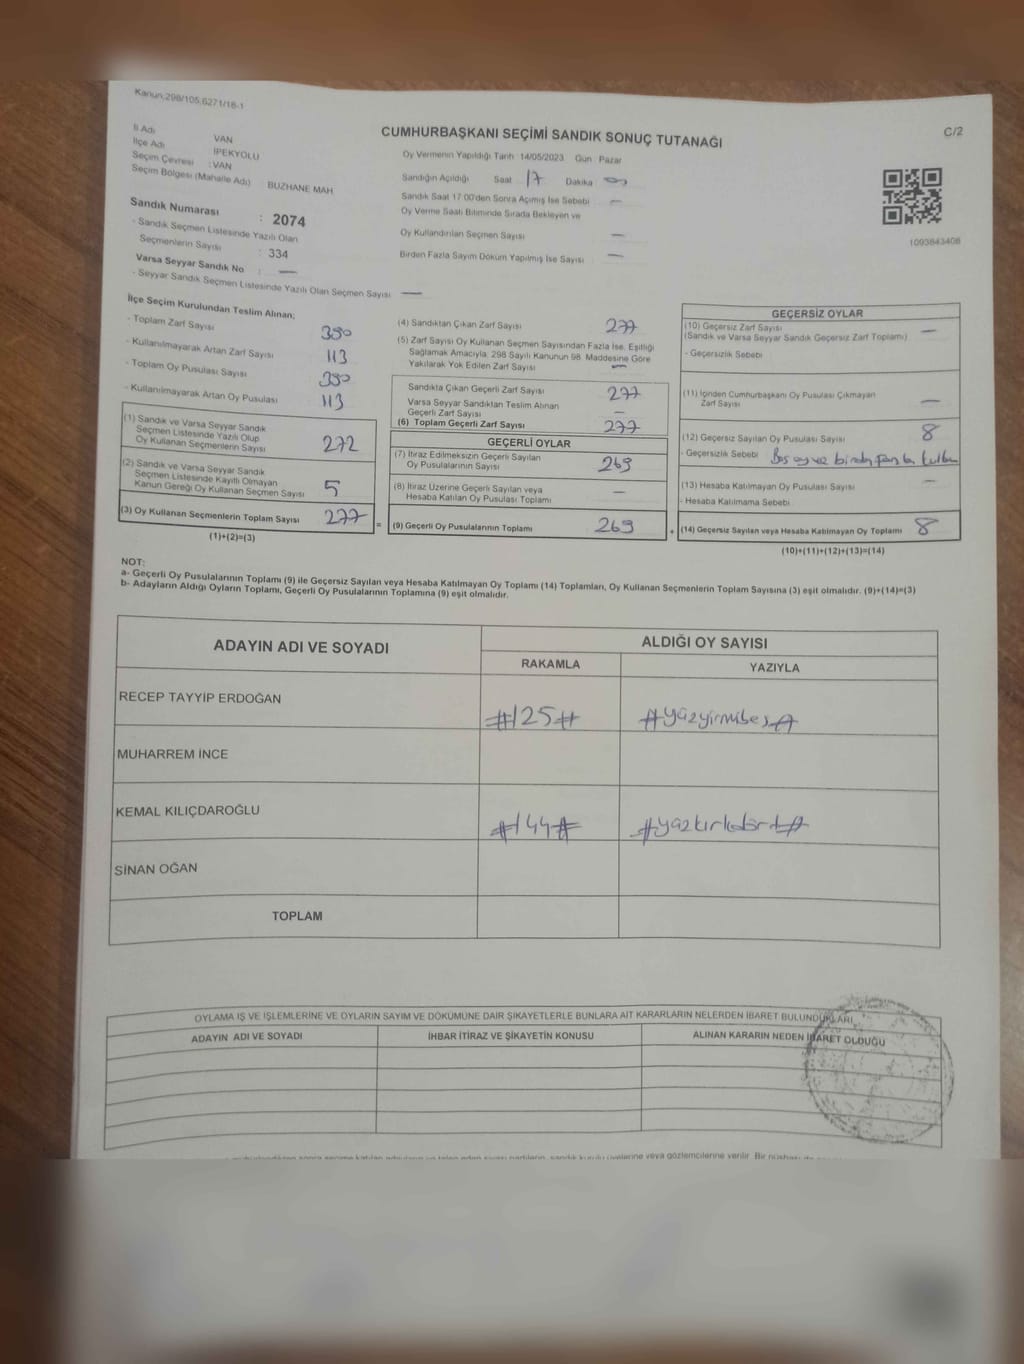 Kanun,298/105,6271/18-1
CUMHURBAŞKANI SEÇİMİ SANDIK SONUÇ TUTANAĞI
C/2
İl Adı VAN
İlçe Adı İPEKYOLU
Seçim Çevresi : VAN
Seçim Bölgesi (Mahalle Adı) BUZHANE MAH
Sandık Numarası : 2074
- Sandık Seçmen Listesinde Yazılı Olan
Seçmenlerin Sayısı : 334
Varsa Seyyar Sandık No : —
- Seyyar Sandık Seçmen Listesinde Yazılı Olan Seçmen Sayısı —
Oy Vermenin Yapıldığı Tarih 14/05/2023 Gün Pazar
Sandığın Açıldığı Saat 17 Dakika
Sandık Saat 17:00'den Sonra Açılmış İse Sebebi —
Oy Verme Saati Bitiminde Sırada Bekleyen ve
Oy Kullandırılan Seçmen Sayısı —
Birden Fazla Sayım Döküm Yapılmış İse Sayısı —
1093843408
İlçe Seçim Kurulundan Teslim Alınan;
- Toplam Zarf Sayısı 390
- Kullanılmayarak Artan Zarf Sayısı 113
- Toplam Oy Pusulası Sayısı 390
- Kullanılmayarak Artan Oy Pusulası 113
(1) Sandık ve Varsa Seyyar Sandık
Seçmen Listesinde Yazılı Olup
Oy Kullanan Seçmenlerin Sayısı 272
(2) Sandık ve Varsa Seyyar Sandık
Seçmen Listesinde Kayıtlı Olmayan
Kanun Gereği Oy Kullanan Seçmen Sayısı 5
(3) Oy Kullanan Seçmenlerin Toplam Sayısı 277
(1)+(2)=(3)
(4) Sandıktan Çıkan Zarf Sayısı 277
(5) Zarf Sayısı Oy Kullanan Seçmen Sayısından Fazla İse, Eşitliği
Sağlamak Amacıyla, 298 Sayılı Kanunun 98. Maddesine Göre
Yakılarak Yok Edilen Zarf Sayısı —
Sandıkta Çıkan Geçerli Zarf Sayısı 277
Varsa Seyyar Sandıktan Teslim Alınan
Geçerli Zarf Sayısı —
(6) Toplam Geçerli Zarf Sayısı 277
GEÇERLİ OYLAR
(7) İtiraz Edilmeksizin Geçerli Sayılan
Oy Pusulalarının Sayısı 269
(8) İtiraz Üzerine Geçerli Sayılan veya
Hesaba Katılan Oy Pusulası Toplamı —
= (9) Geçerli Oy Pusulalarının Toplamı 269
GEÇERSİZ OYLAR
(10) Geçersiz Zarf Sayısı —
(Sandık ve Varsa Seyyar Sandık Geçersiz Zarf Toplamı)
- Geçersizlik Sebebi
(11) İçinden Cumhurbaşkanı Oy Pusulası Çıkmayan
Zarf Sayısı —
(12) Geçersiz Sayılan Oy Pusulası Sayısı 8
- Geçersizlik Sebebi Boş oy ve birden fazla
(13) Hesaba Katılmayan Oy Pusulası Sayısı —
- Hesaba Katılmama Sebebi
+ (14) Geçersiz Sayılan veya Hesaba Katılmayan Oy Toplamı 8
(10)+(11)+(12)+(13)=(14)
NOT:
a- Geçerli Oy Pusulalarının Toplamı (9) ile Geçersiz Sayılan veya Hesaba Katılmayan Oy Toplamı (14) Toplamları, Oy Kullanan Seçmenlerin Toplam Sayısına (3) eşit olmalıdır. (9)+(14)=(3)
b- Adayların Aldığı Oyların Toplamı, Geçerli Oy Pusulalarının Toplamına (9) eşit olmalıdır.
ADAYIN ADI VE SOYADI
ALDIĞI OY SAYISI
RAKAMLA YAZIYLA
RECEP TAYYİP ERDOĞAN #125# #yüzyirmibeş#
MUHARREM İNCE
KEMAL KILIÇDAROĞLU #144# #yüzkırkdört#
SİNAN OĞAN
TOPLAM
OYLAMA İŞ VE İŞLEMLERİNE VE OYLARIN SAYIM VE DÖKÜMÜNE DAİR ŞİKAYETLERLE BUNLARA AİT KARARLARIN NELERDEN İBARET BULUNDUKLARI
ADAYIN ADI VE SOYADI İHBAR İTİRAZ VE ŞİKAYETİN KONUSU ALINAN KARARIN NEDEN İBARET OLDUĞU